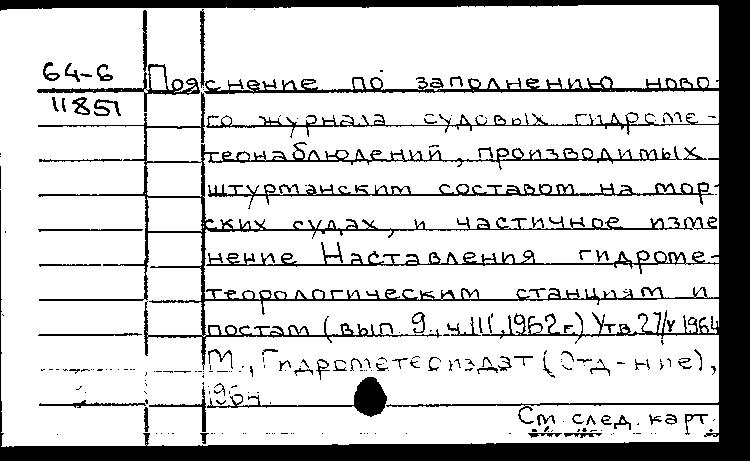 64-6
Пояснение по заполнению ново-
11851
го журнала судовых гидроме-
теонаблюдений, производимых
штурманским составом на мор-
ских судах, и частичное изме
нение Наставления гидроме-
теорологическим станциям и
постам (вып. 9, ч. III, 1962 г.) Утв. 27/V 1964
М., Гидрометеоиздат (Отд-ние),
1964.
См. след. карт.